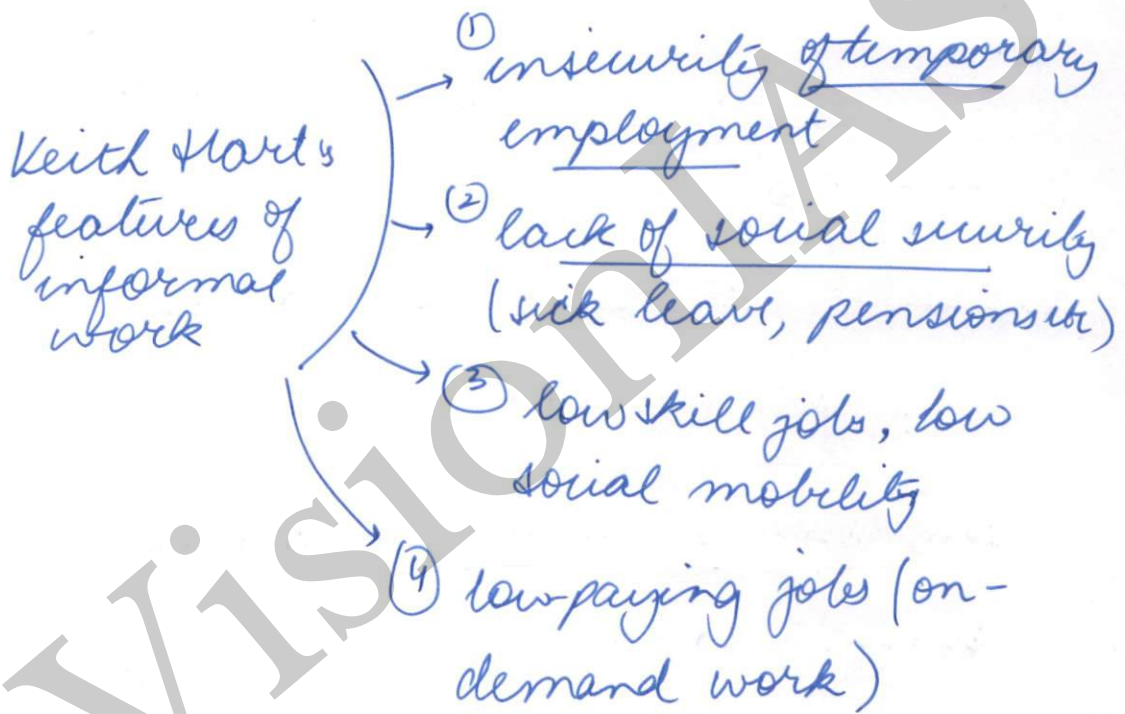 Keith Hart's
features of
informal
work
① insecurity of temporary
employment
② lack of social security
(sick leave, pensions etc)
③ low skill jobs, low
social mobility
④ low-paying jobs (on-
demand work)
VisionIAS